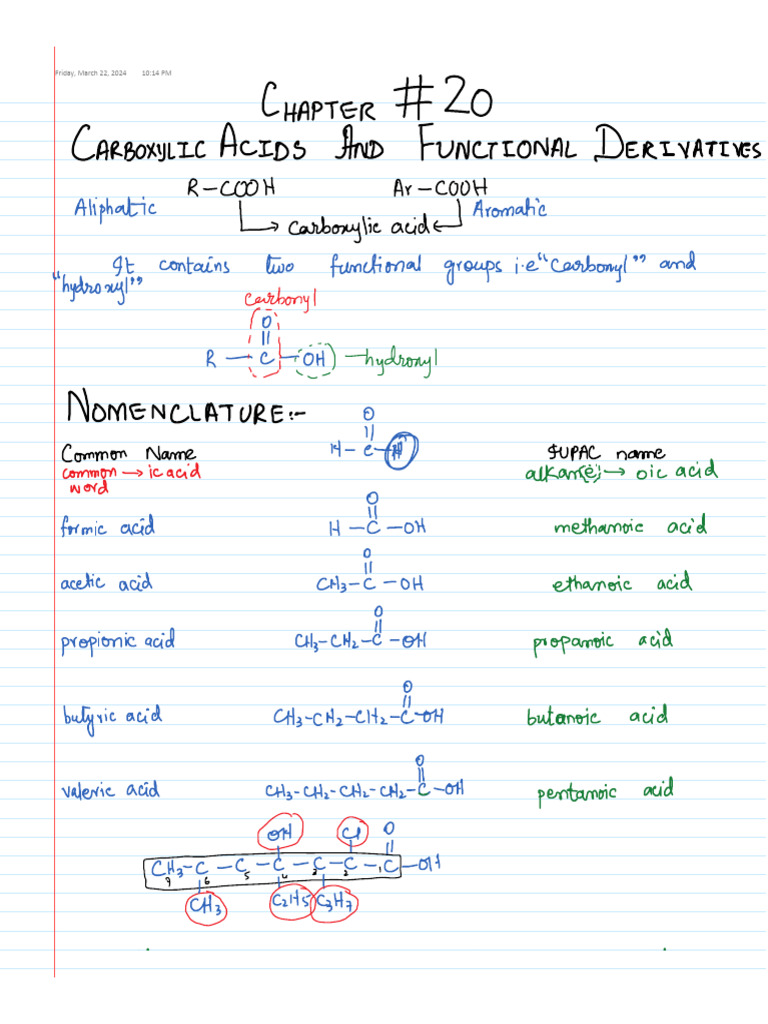 Friday, March 22, 2024 10:14 PM
CHAPTER # 20
CARBOXYLIC ACIDS AND FUNCTIONAL DERIVATIVES
R-COOH Ar-COOH
Aliphatic Carboxylic acid Aromatic
It contains two functional groups i.e "Carbonyl" and
"hydroxyl"
carbonyl
O
||
R — C — OH — hydroxyl
NOMENCLATURE:-
O
||
Common Name H - C - H IUPAC name
common → ic acid alkan(e) → oic acid
word
O
||
formic acid H - C - OH methanoic acid
O
||
acetic acid CH3 - C - OH ethanoic acid
O
||
propionic acid CH3-CH2-C-OH propanoic acid
O
||
butyric acid CH3-CH2-CH2-C-OH butanoic acid
O
||
valeric acid CH3-CH2-CH2-CH2-C-OH pentanoic acid
OH Cl O
||
CH3-C-C-C-C-C-C-OH
7 6 5 4 3 2 1
CH3 C2H5 C3H7